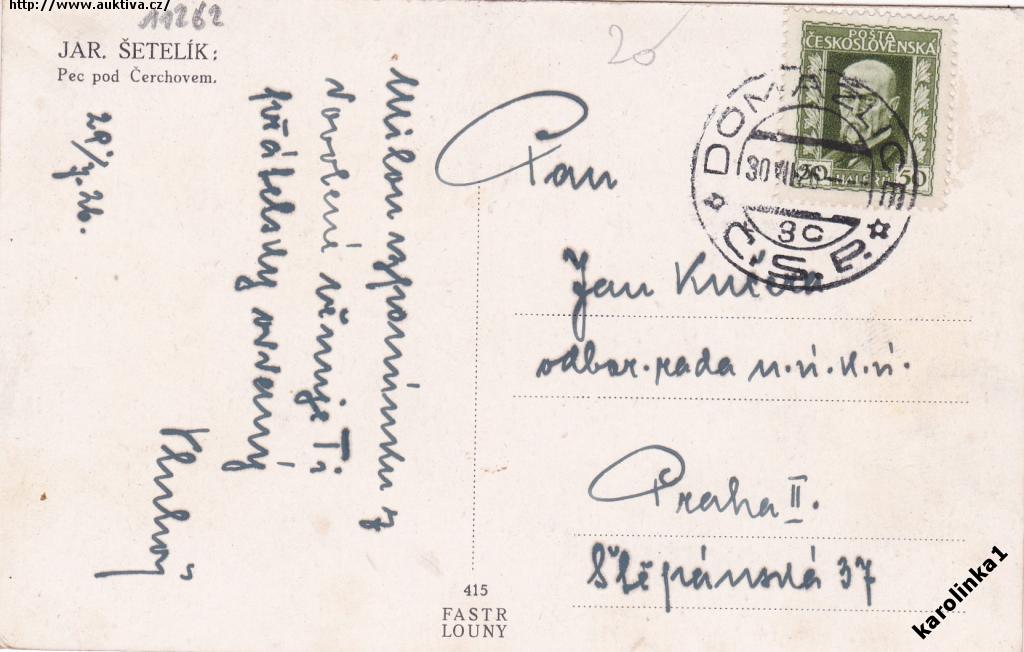 http://www.auktiva.cz/
11262
20
JAR. ŠETELÍK:
Pec pod Čerchovem.
29/7. 26.
Milou vzpomínku z
dovolené věnuje Ti
přátelsky oddaný
POŠTA
ČESKOSLOVENSKÁ
50 HALÉŘŮ 50
DOMAŽLICE
30 VII 26
3C
Č.S.P.
Pan
Jan
odbor. rada
Praha II.
Štěpánská 37
415
FASTR
LOUNY
karolinka1